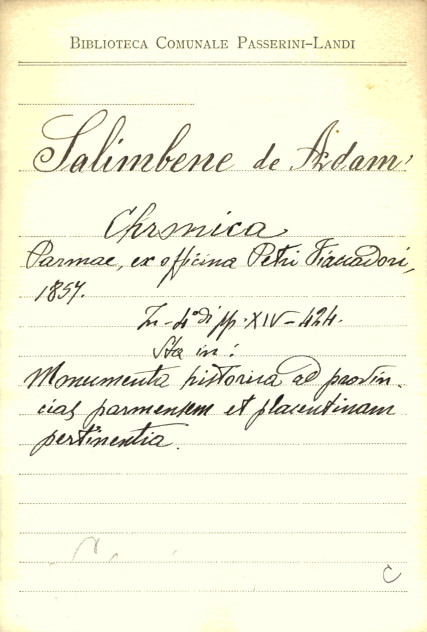 BIBLIOTECA COMUNALE PASSERINI-LANDI
Salimbene de Adam
Chronica
Parmae, ex officina Petri Fiaccadori,
1857.
In-4° di pp. XIV-424.
Sta in:
Monumenta historica ad provin-
cias parmensem et placentinam
pertinentia.
C